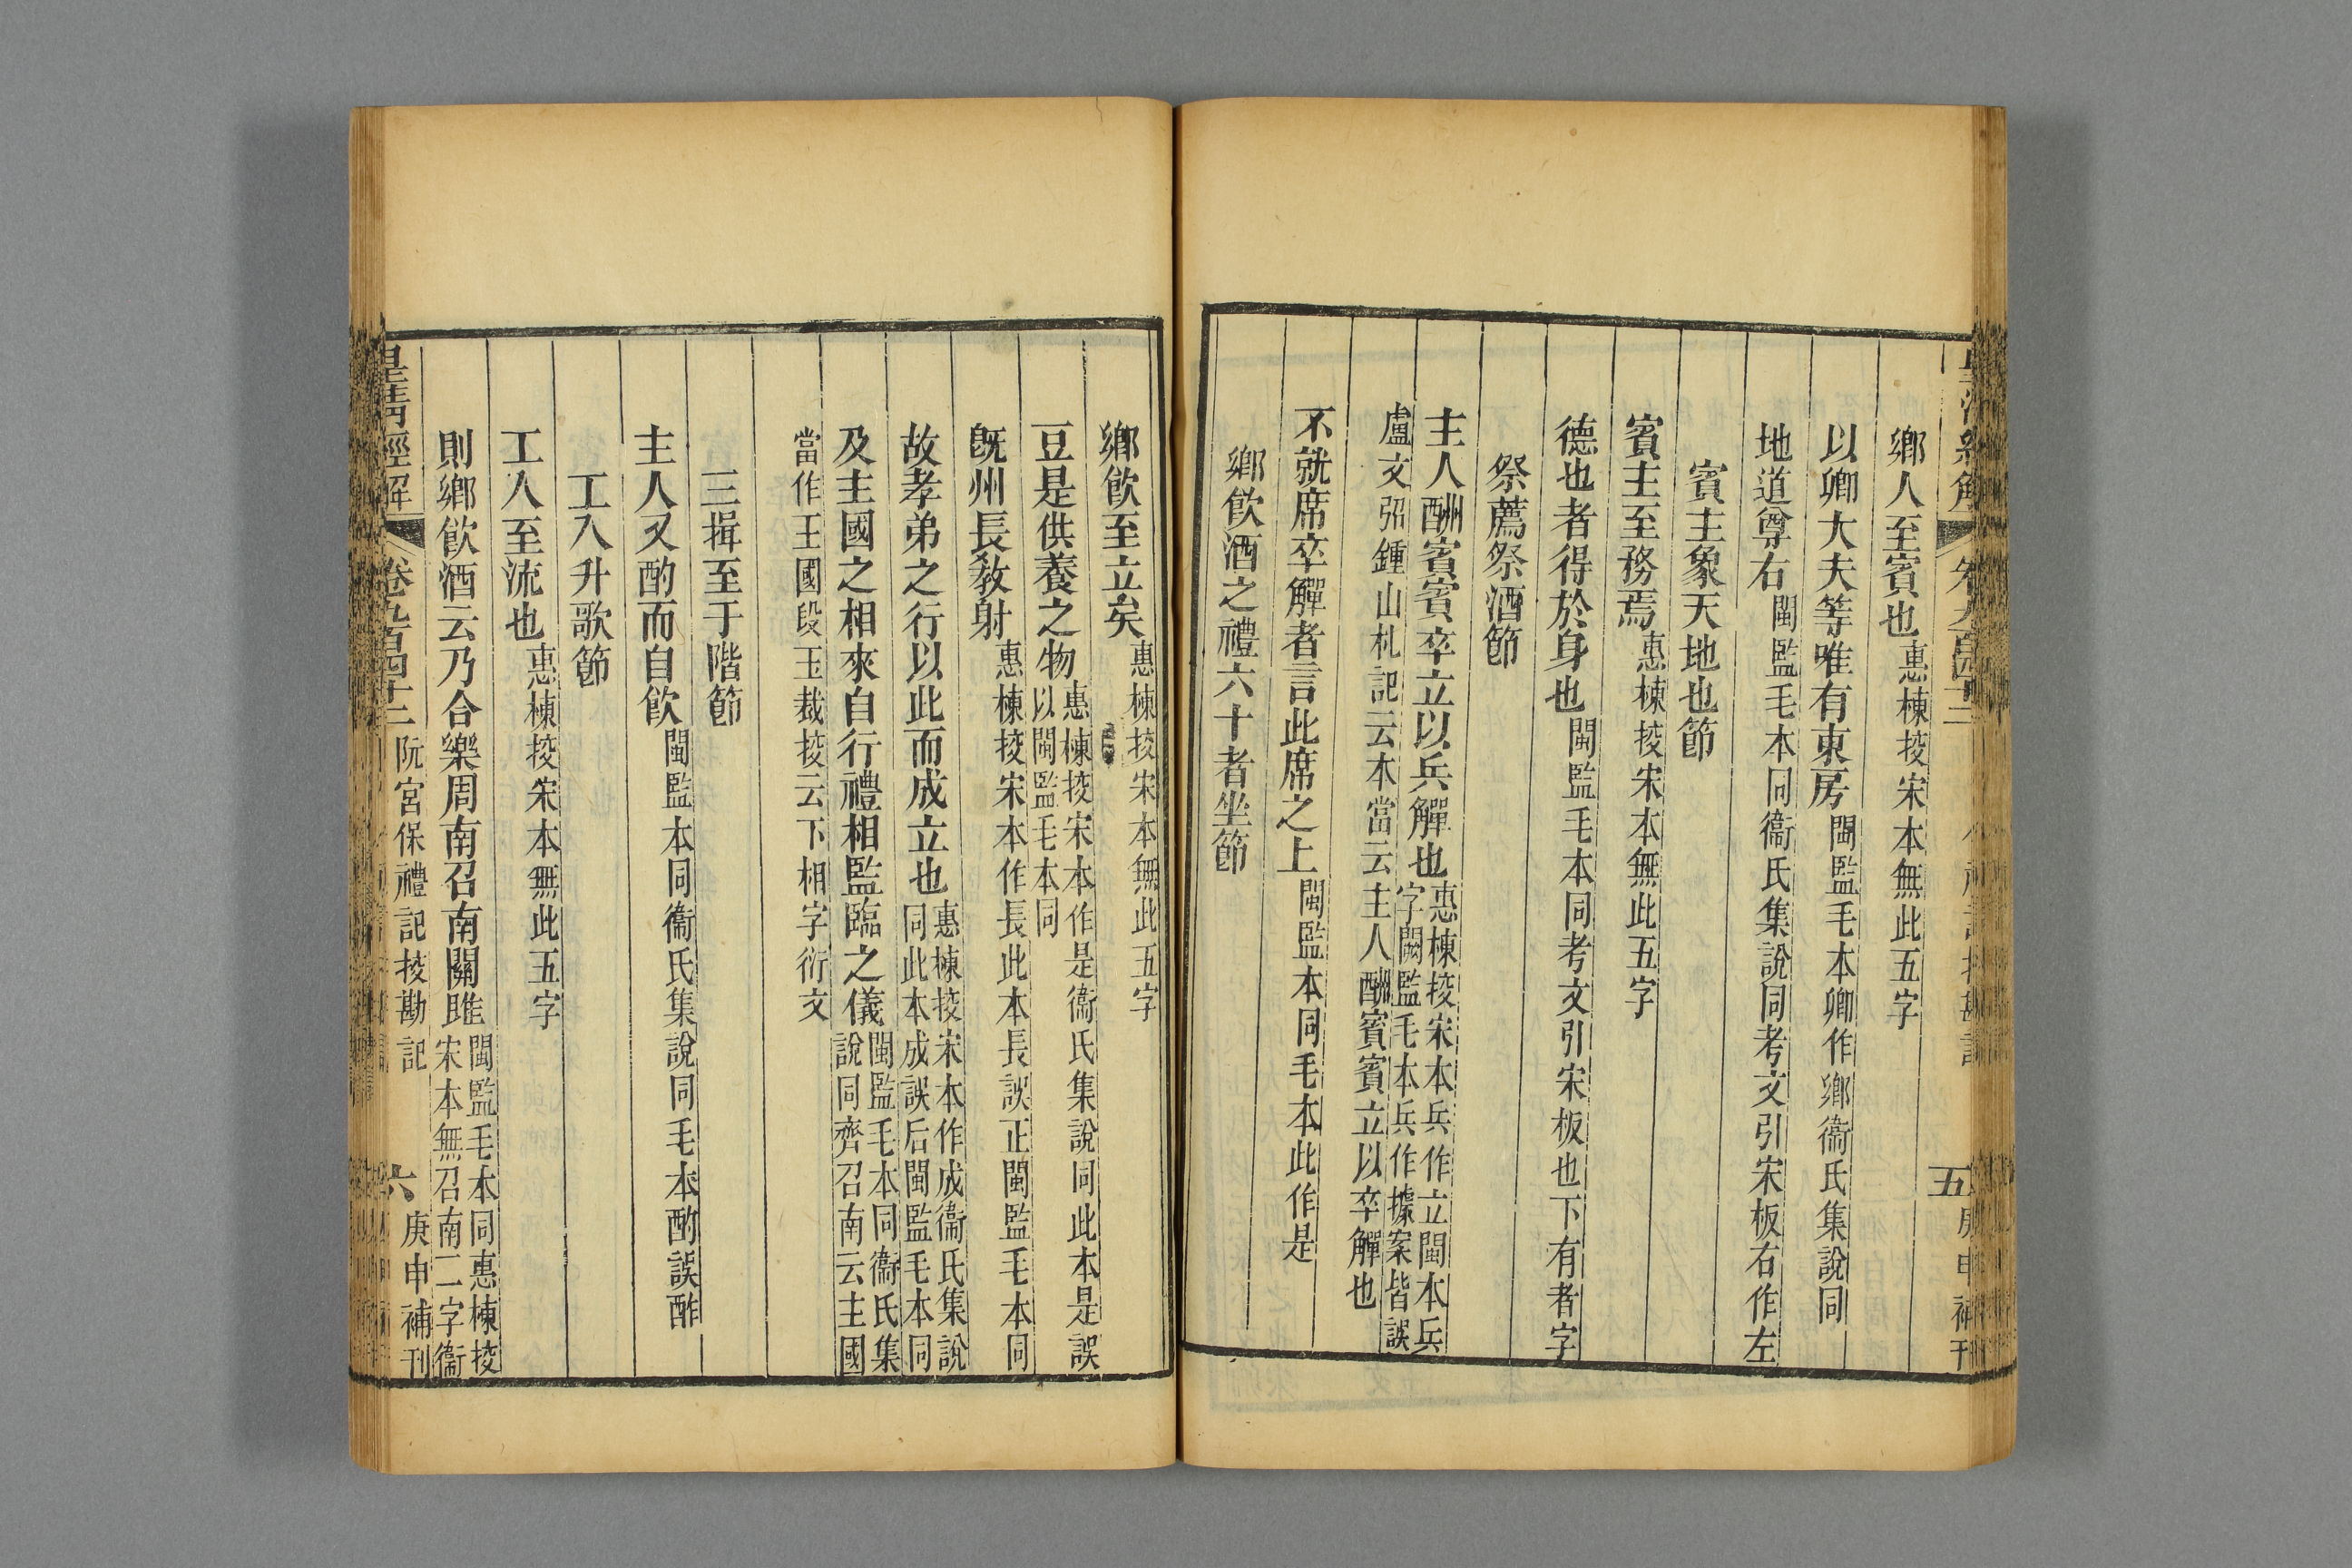 鄉人至賓也惠棟挍宋本無此五字
以卿大夫等唯有東房閩監毛本卿作鄉衞氏集說同
地道尊右閩監毛本同衞氏集說同考文引宋板右作左
賓主象天地也節
賓主至務焉惠棟挍宋本無此五字
德也者得於身也閩監毛本同考文引宋板也下有者字
祭薦祭酒節
主人酬賓賓卒立以兵觶也惠棟挍宋本兵作立閩本兵
字闕監毛本兵作據案皆誤
盧文弨鍾山札記云本當云主人酬賓賓立以卒觶也
不就席卒觶者言此席之上閩監本同毛本此作是
鄉飲酒之禮六十者坐節
五
鄉飲至立矣惠棟挍宋本無此五字
豆是供養之物惠棟挍宋本作是衞氏集說同此本是誤
以閩監毛本同
既州長教射惠棟挍宋本作長此本長誤正閩監毛本同
故孝弟之行以此而成立也惠棟挍宋本作成衞氏集說
同此本成誤后閩監毛本同
及主國之相來自行禮相監臨之儀閩監毛本同衞氏集
說同齊召南云主國
當作王國段玉裁挍云下相字衍文
三揖至于階節
主人又酌而自飲閩監本同衞氏集說同毛本酌誤酢
工入升歌節
工入至流也惠棟挍宋本無此五字
則鄉飲酒云乃合樂周南召南關雎閩監毛本同惠棟挍
宋本無召南二字衞
皇清經解 卷九百四十二 阮宮保禮記挍勘記 六 庚申補刊